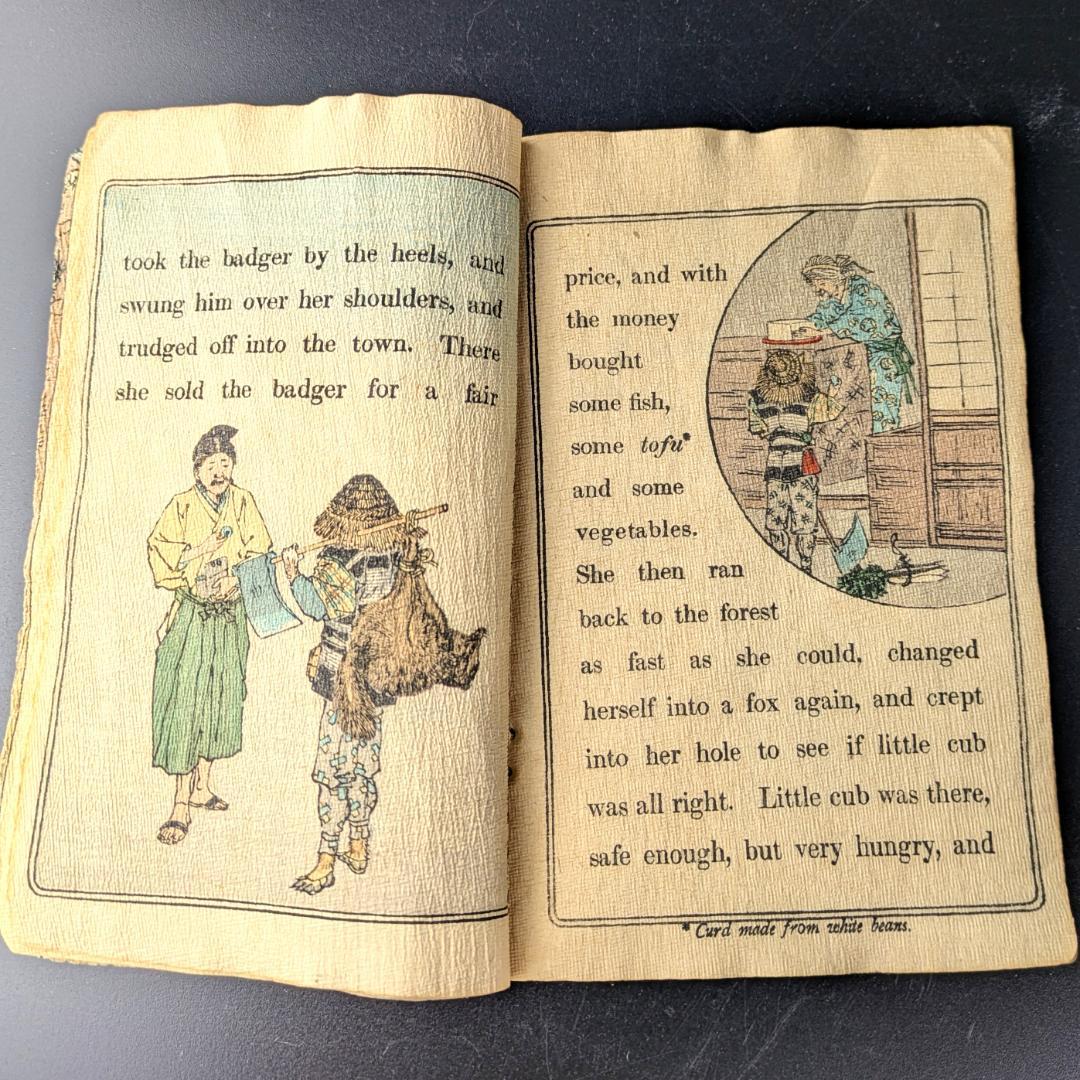 took the badger by the heels, and
swung him over her shoulders, and
trudged off into the town. There
she sold the badger for a fair
price, and with
the money
bought
some fish,
some tofu*
and some
vegetables.
She then ran
back to the forest
as fast as she could, changed
herself into a fox again, and crept
into her hole to see if little cub
was all right. Little cub was there,
safe enough, but very hungry, and
* Curd made from white beans.